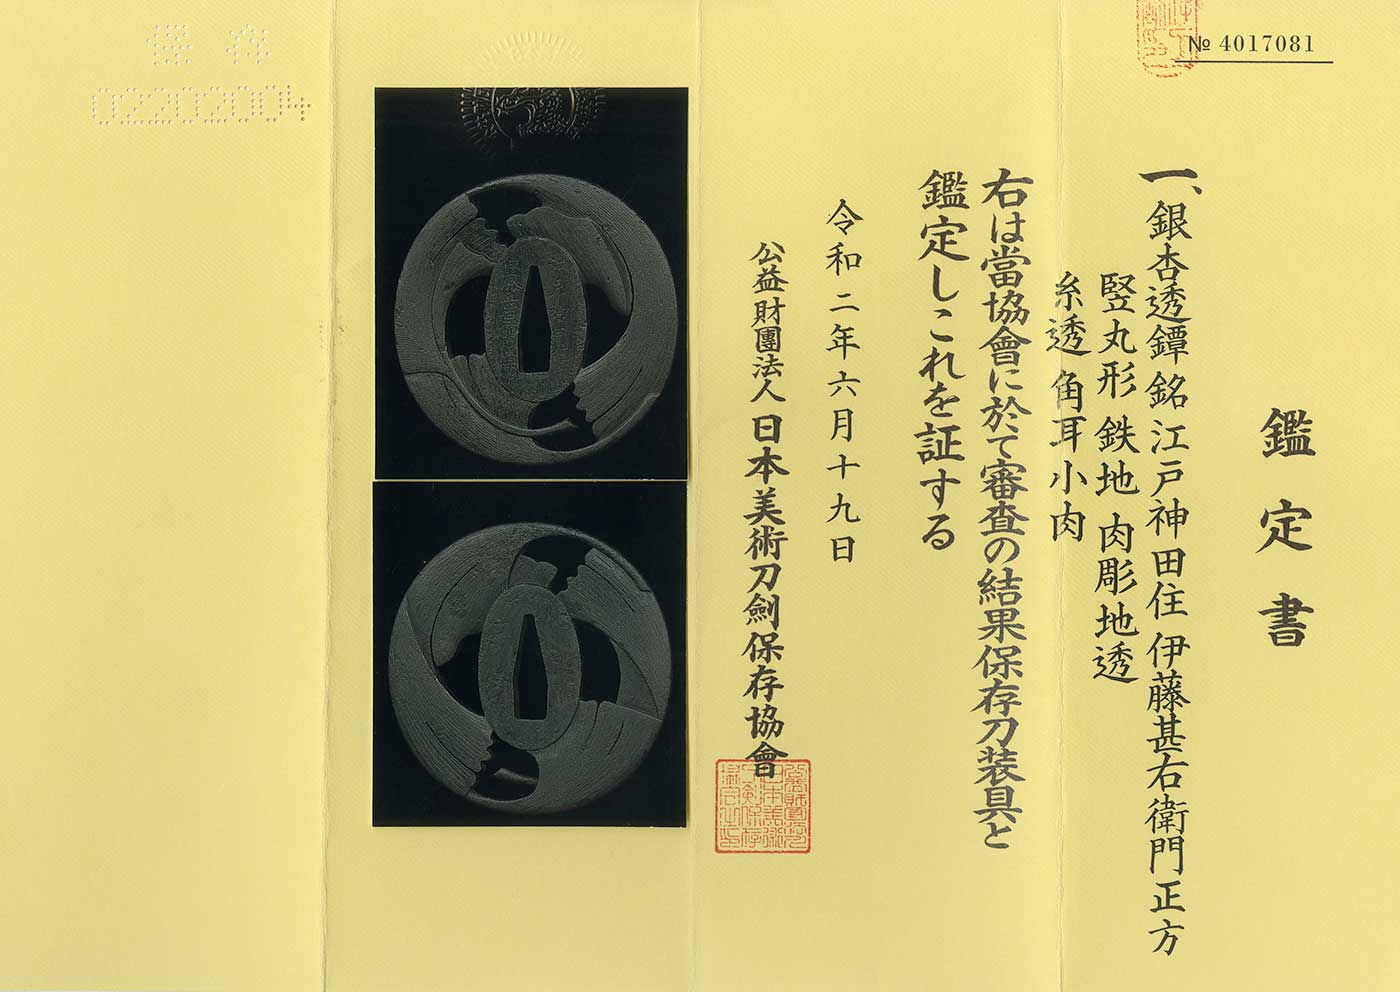 № 4017081
鑑定書
一、銀杏透鐔 銘 江戸神田住 伊藤甚右衛門正方
竪丸形 鉄地 肉彫地透
糸透 角耳小肉
右は當協會に於て審査の結果保存刀装具と
鑑定しこれを証する
令和二年六月十九日
公益財團法人 日本美術刀劍保存協會
保存
0220204